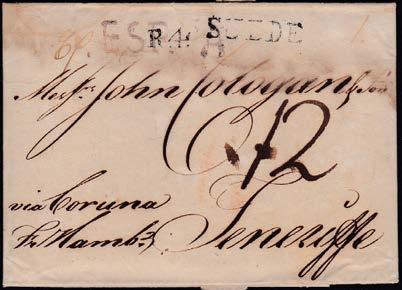 ESPAÑA R.4. SUEDE
Messrs John Cologan & Son
12
via Coruna
Fr Hambg Teneriffe